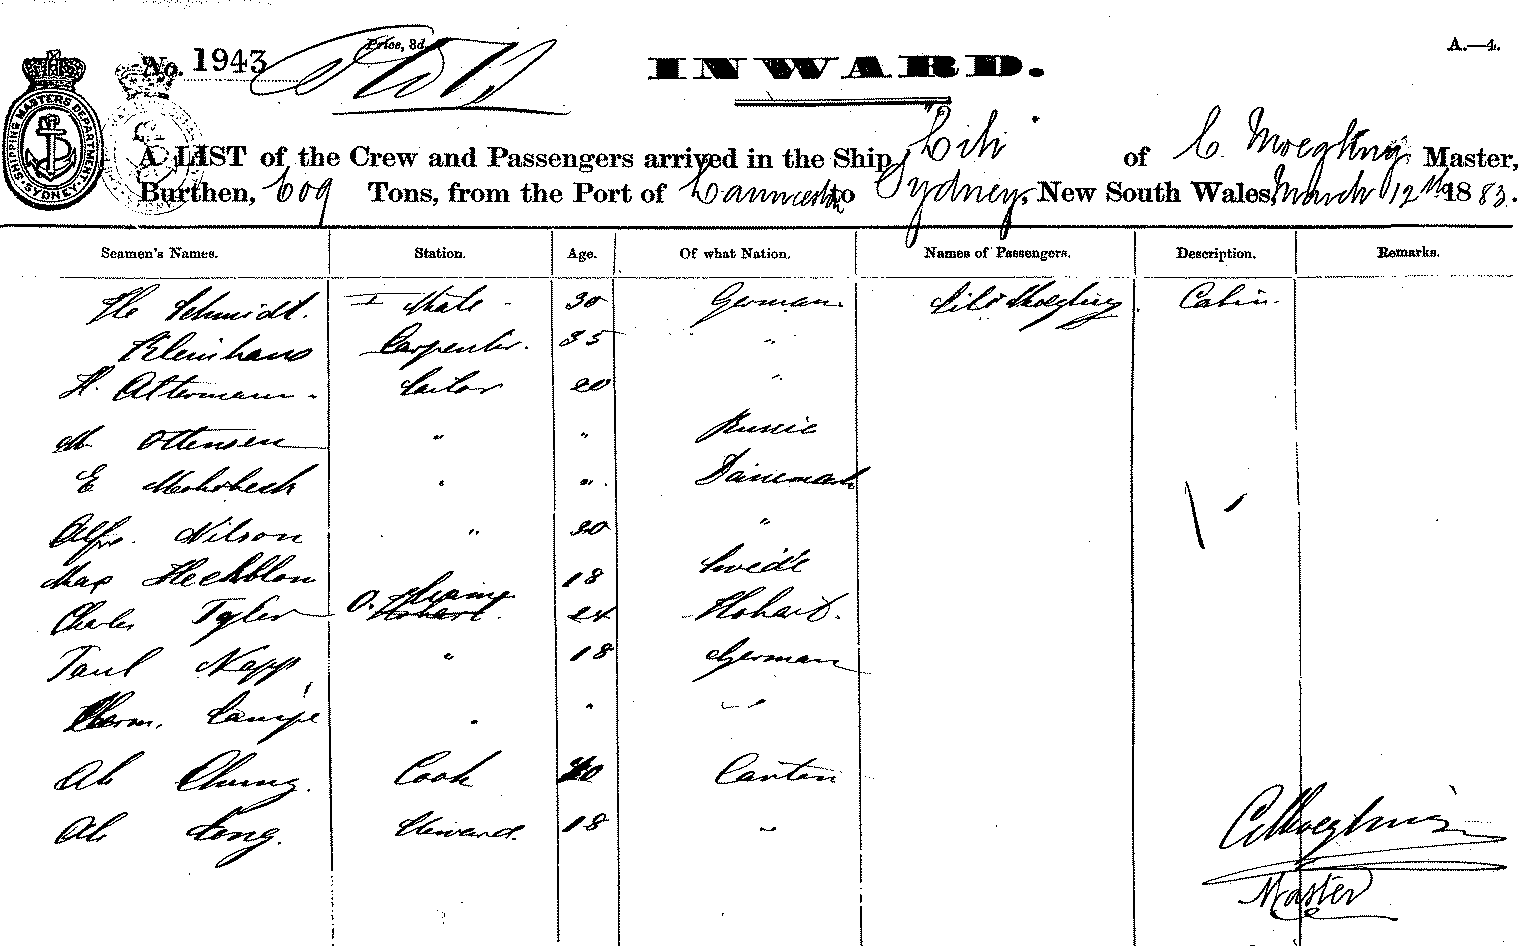 No. 1943 Price, 3d.
INWARD.
A.—4.
SHIPPING MASTERS DEPARTMENT SYDNEY
A LIST of the Crew and Passengers arrived in the Ship, "Lili" of C. Moegling Master,
Burthen, 609 Tons, from the Port of Launceston to Sydney, New South Wales, March 12th 1883.
Seamen's Names. Station. Age. Of what Nation. Names of Passengers. Description. Remarks.
Schmidt. I Mate - 30 German Lili Moegling. Cabin.
Kleinhans Carpenter. 35 "
H. Altermann. Sailor 20 "
M Ottensen " " Russie
E Mohrbeck " " Dänemark
Alfr. Nilson " 20 "
Max Heckblom 18 Swede
Charles Tyler O. Seaman Hobart. 24 Hobart.
Paul Napp " 18 German
Herm. Lampe " " "
Ah Chung. Cook 40 Canton
Ah Long. Steward. 18 "
C Moegling
Master